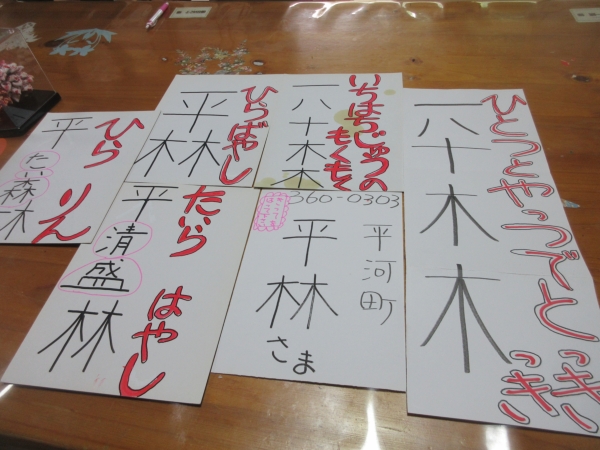 平林
ひらりん
たい森木
平林
ひらばやし
一八十木木
いちはちじゅうの
もくもく
一八十木木
ひとつとやっつでとっきっき
平清盛林
たいらはやし
360-0303
平河町
平林
さま